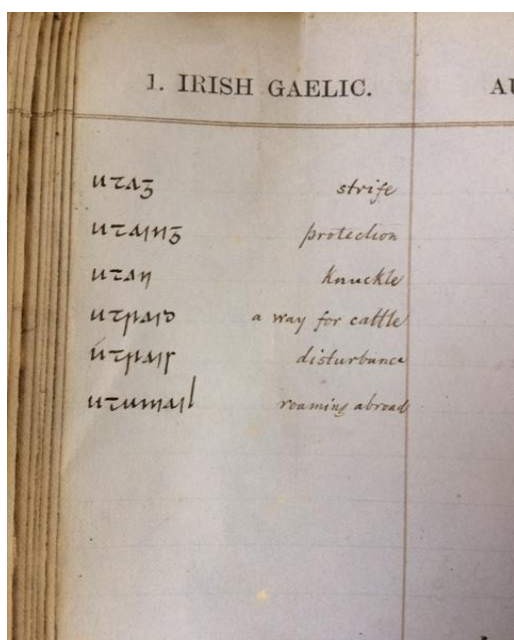 1. IRISH GAELIC. AU
utag strife
utaing protection
utan knuckle
utraid a way for cattle
útrais disturbance
utumail roaming abroad